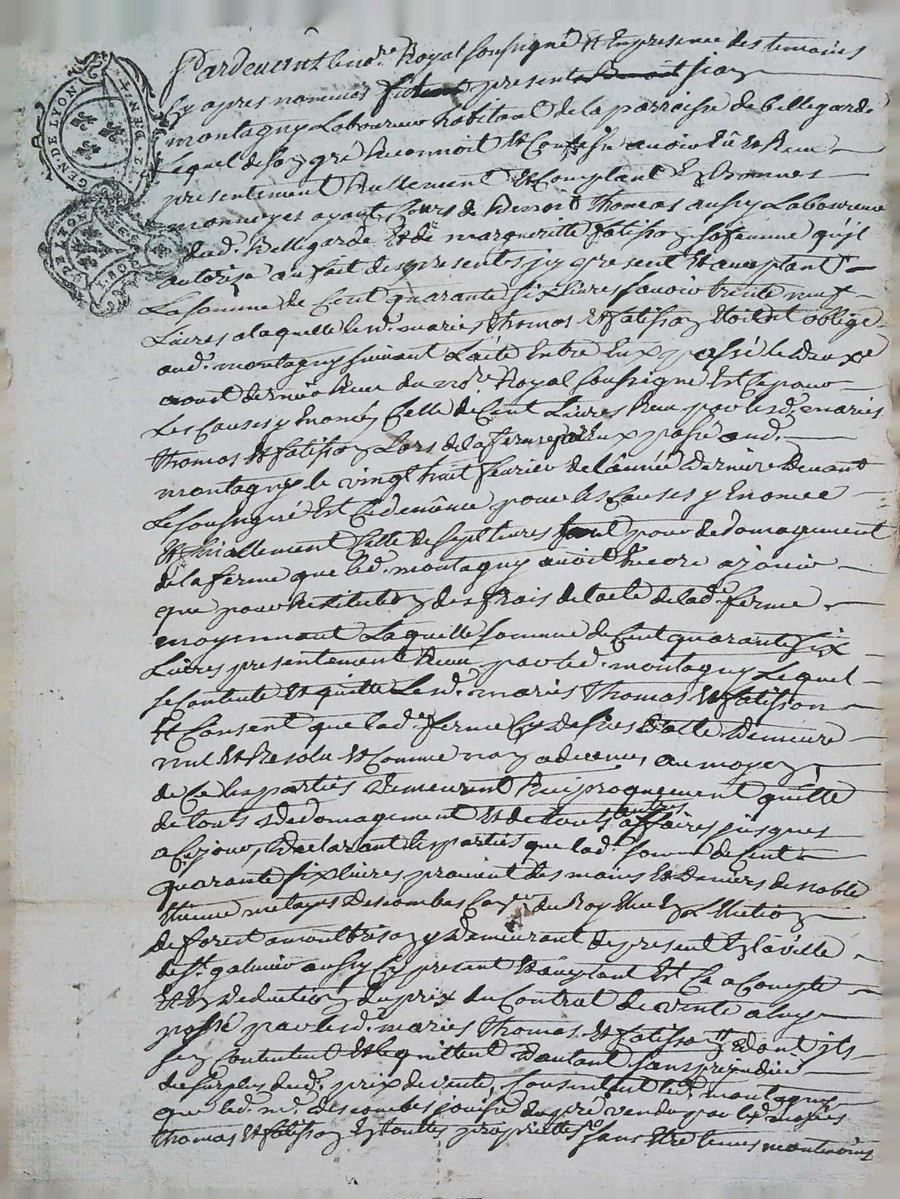 GEN. DE LYON
Pardevant le no.re Royal soussigné Et En presence des temoins
Cy apres nommés fut present Benoit
montagny Laboureur habitant de la parroisse de bellegarde
Lequel de son gré Reconnoit Et Confesse avoir Eu Et Receu
presentement Reellement Et Comptant En bonnes
monnoyes ayant Cours de Benoit Thomas aussy Laboureur
dud. Bellegarde Et de margueritte fatisson sa femme qu'jl
autorise au fait des presentes jcy present Et acceptant
La somme de Cent quarante six Livres savoir trente neuf
Livres a laquelle les d. mariés Thomas Et fatisson Etoient obligé
aud. montagny suivant L'acte Entre Eux passé le deux
aoust dernier Receu du no.re Royal soussigné Est Ce pour
Les Causes y Enoncées Celle de Cent Livres Receu par lesd. mariés
Thomas Et fatisson Lors de la ferme par Eux passé aud.
montagny le vingt huit fevrier de l'année derniere devant
Le soussigné Est Ce de même pour les Causes y Enoncée
Et finallement Celle de sept Livres tant pour dedomagement
de la ferme que led. montagny avoit Encore a jouir
que pour Restitution des frais de l'acte de lad. ferme
moyennant Laquelle somme de Cent quarante six
Livres presentement Receu par led. montagny Lequel
se Contente Et quitte Les d. mariés Thomas Et fatisson
Et Consent que lad.e ferme Cy dessus datte Demeure
nul Et Resolu Et Comme non advenues au moyen
de Ce les parties Demeurent Reciproquement quitte
de tous dedomagement Et de touts autres affaires jusques
a Ce jour, Declarant les parties que lad. somme de Cent
quarante six livres provient des mains Et Deniers de noble
Etienne metayer Descombes du Roy En L'Election
de forest a montbrison y Demeurant de present En la ville
de St. galmier aussy Cy present Et acceptant Est Ce a Compte
Et En Deduction du prix du Contrat de vente a luy
passé par lesd. mariés Thomas Et fatisson Et dont jls
sen Contentent Et le quittent Dautant sans prejudice
du surplus dud. prix de vente, Consentant led. montagny
que led. m.r Descombes jouisse du pré vendu par lesd. mariés
Thomas Et fatisson En touttes proprietté sans Etre tenus